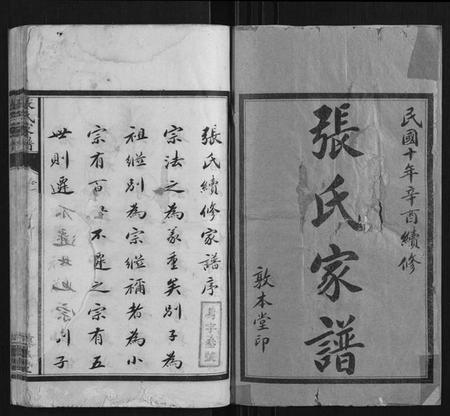 民國十年辛酉續修
張氏家譜
敦本堂印
張氏續修家譜序
宗法之為義重矣別子為
祖繼別為宗繼禰者為小
宗有百世不遷之宗有五
世則遷
宗別子